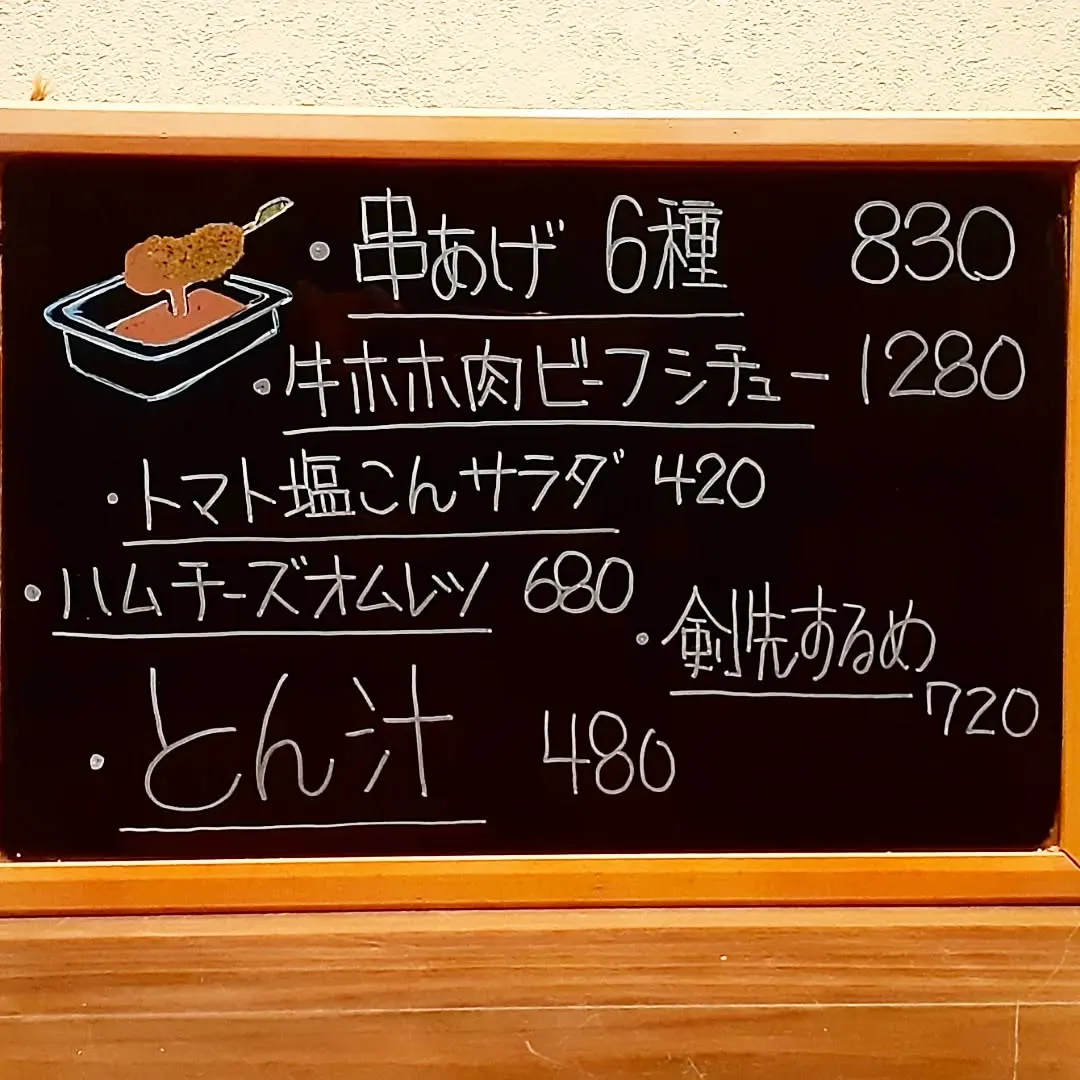 ・串あげ 6種 830
・牛ホホ肉ビーフシチュー 1280
・トマト塩こんサラダ 420
・ハムチーズオムレツ 680
・剣先するめ
720
・とん汁 480